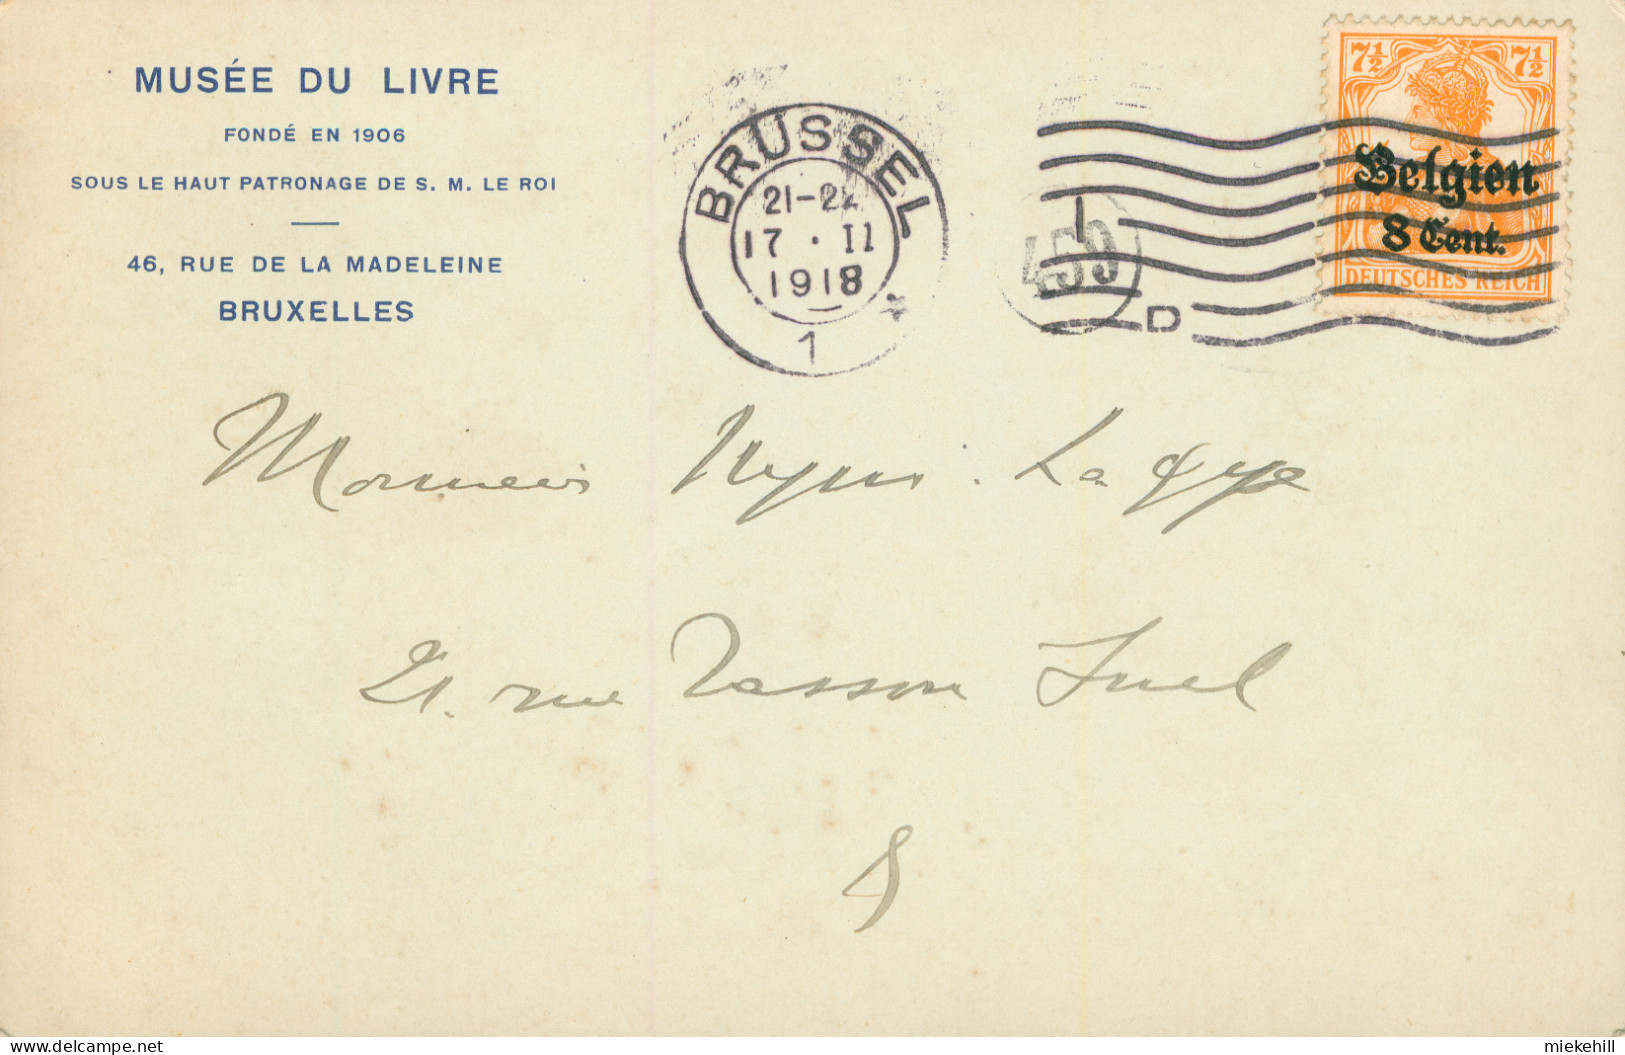 MUSÉE DU LIVRE
FONDÉ EN 1906
SOUS LE HAUT PATRONAGE DE S. M. LE ROI
46, RUE DE LA MADELEINE
BRUXELLES
BRUSSEL
21-22
17 . II
1918
1
459
D
7½ 7½
Belgien
8 Cent.
DEUTSCHES REICH
Monsieur
21. rue
miekehill